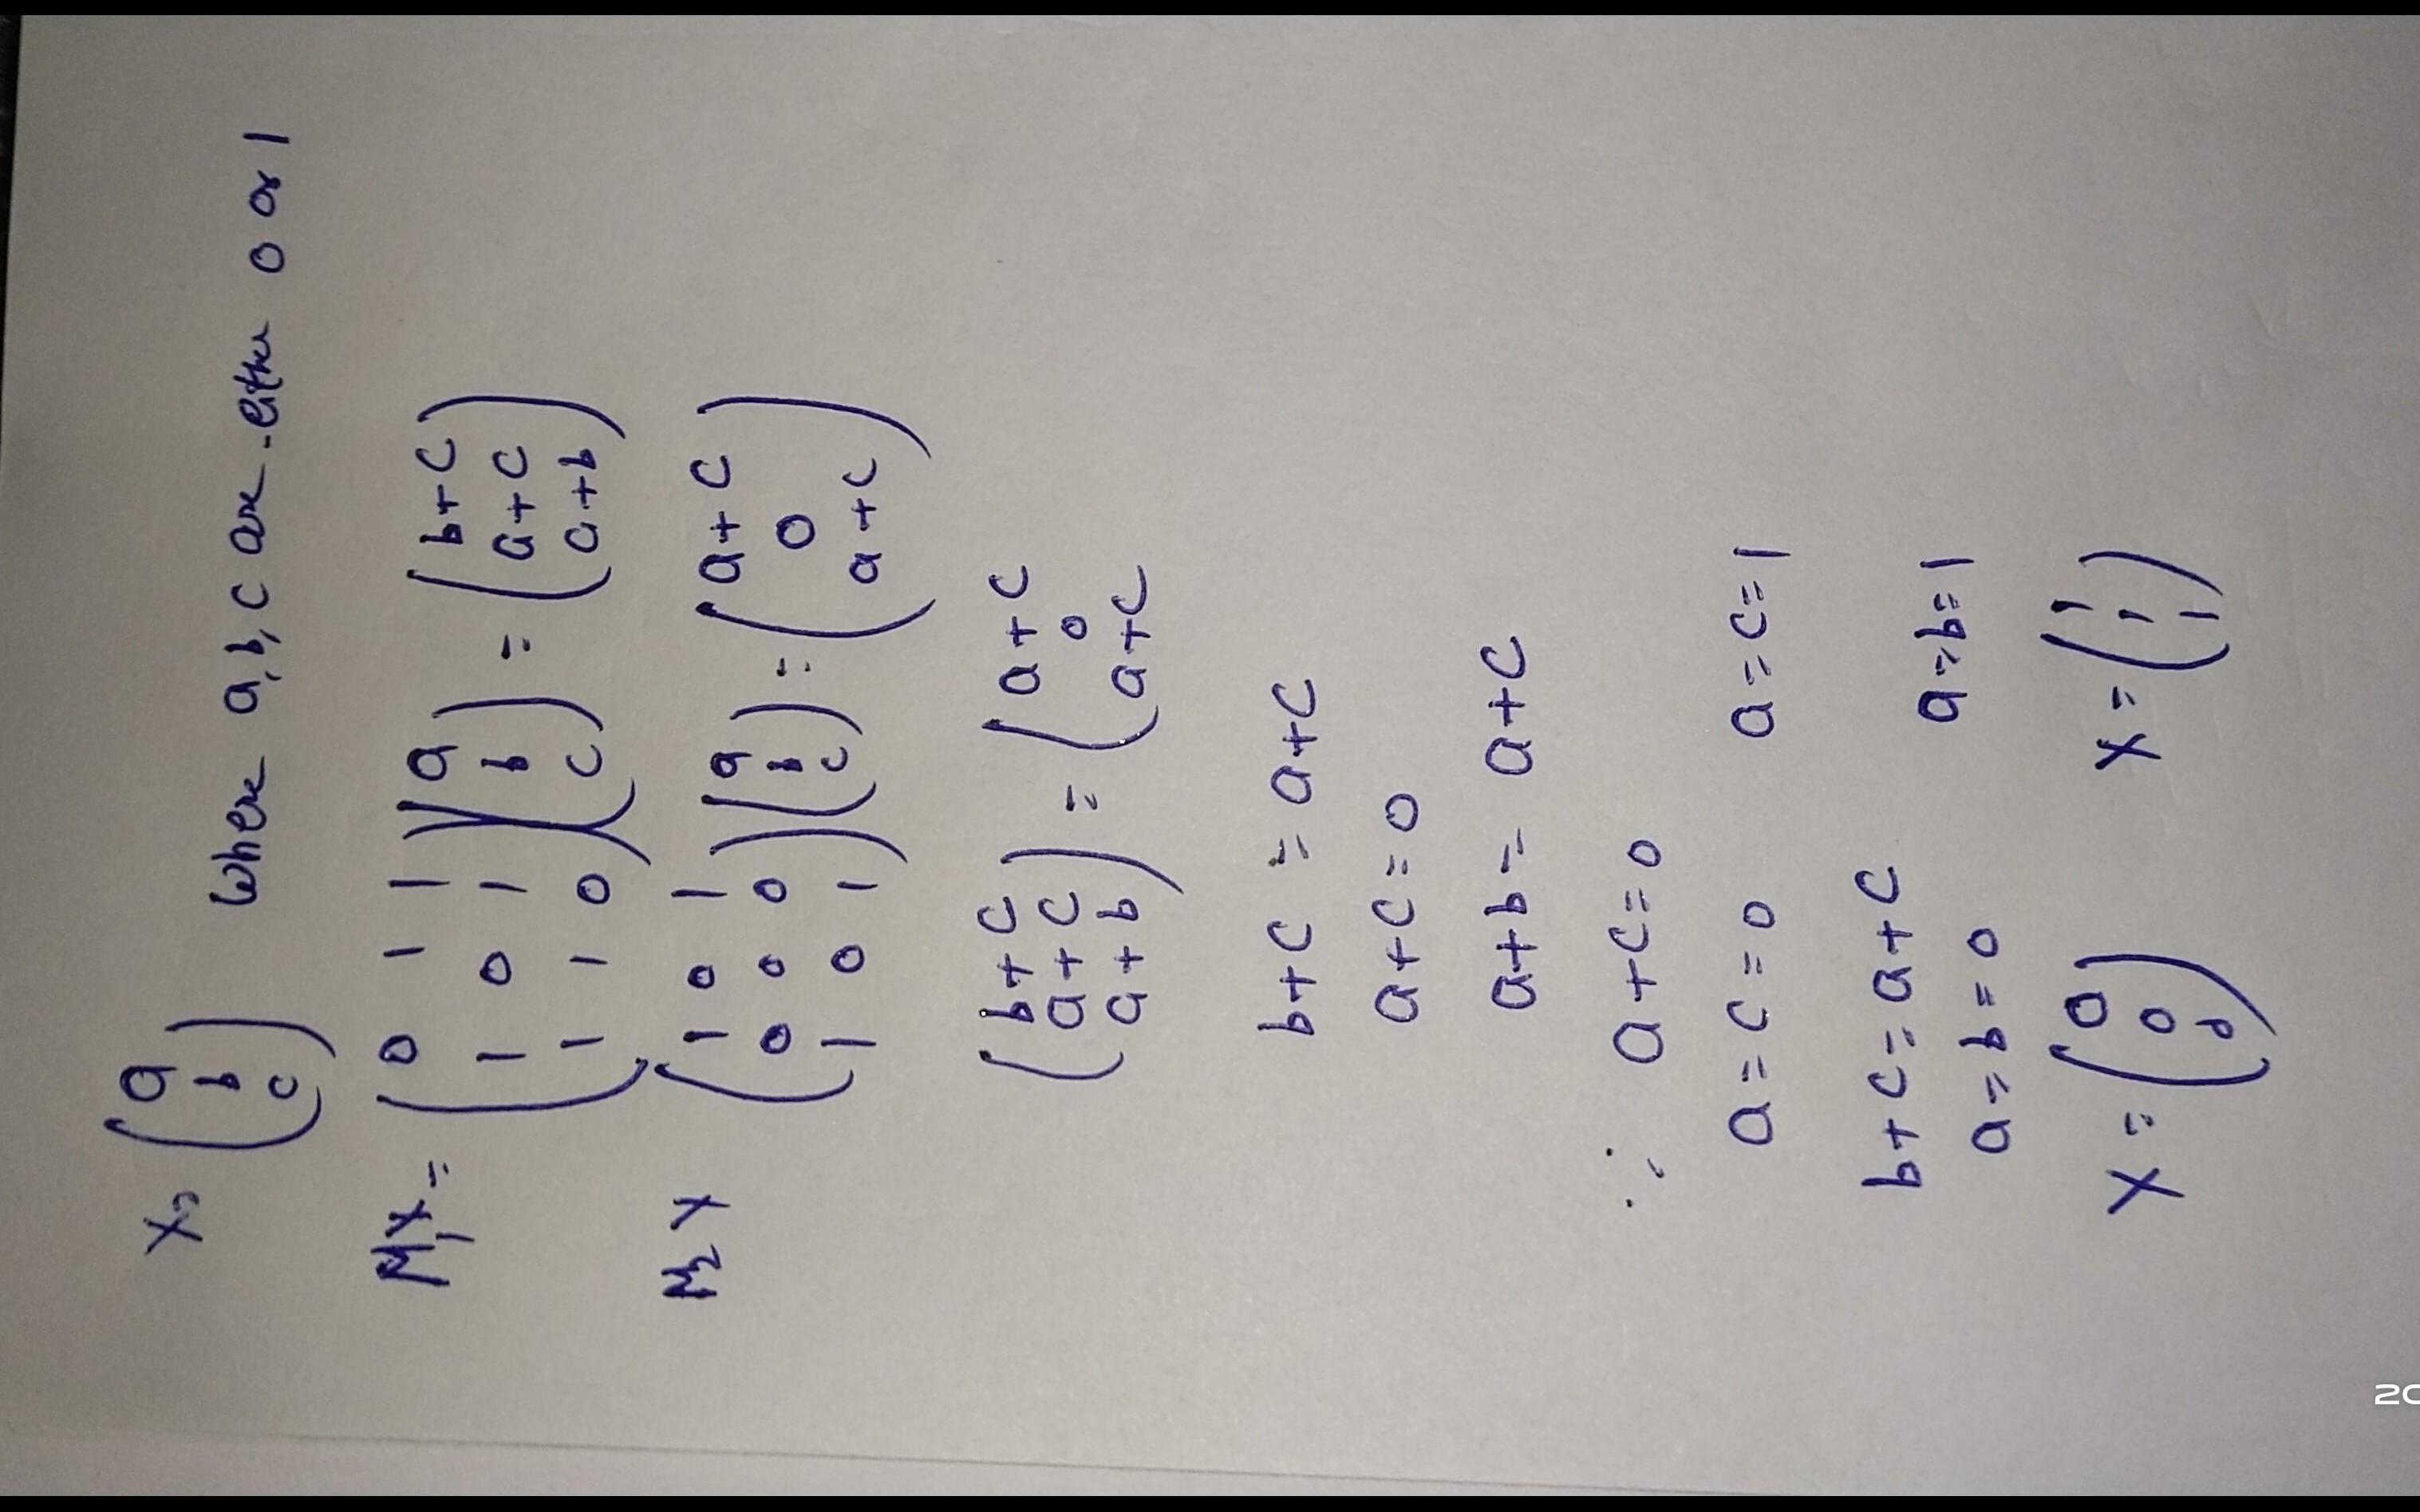 X = (a b c) where a, b, c are either 0 or 1
M₁X = (0 1 1
1 0 1
1 1 0) (a b c) = (b+c
a+c
a+b)
M₂X (1 0 1
0 0 0
1 0 1) (a b c) = (a+c
0
a+c)
(b+c
a+c
a+b) = (a+c
0
a+c)
b+c = a+c
a+c = 0
a+b = a+c
∴ a+c = 0
a = c = 0 a = c = 1
b+c = a+c
a = b = 0 a = b = 1
X = (0 0 0) X = (1 1 1)
20